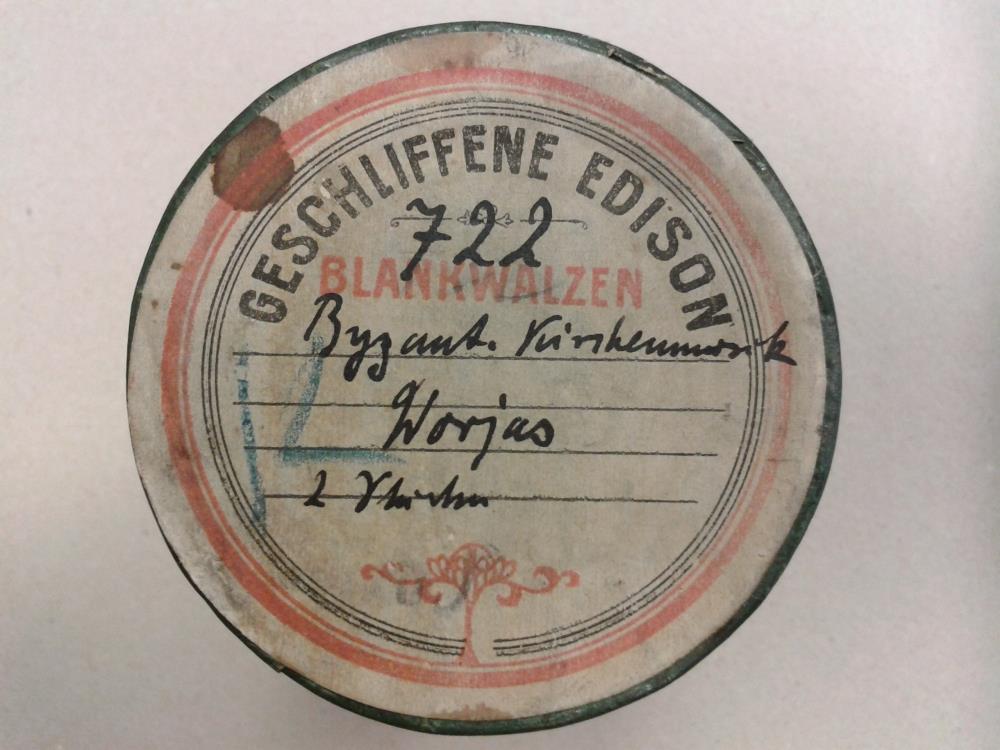 GESCHLIFFENE EDISON
722
BLANKWALZEN
Byzant. Kirchenmusik
Worjas
2
12